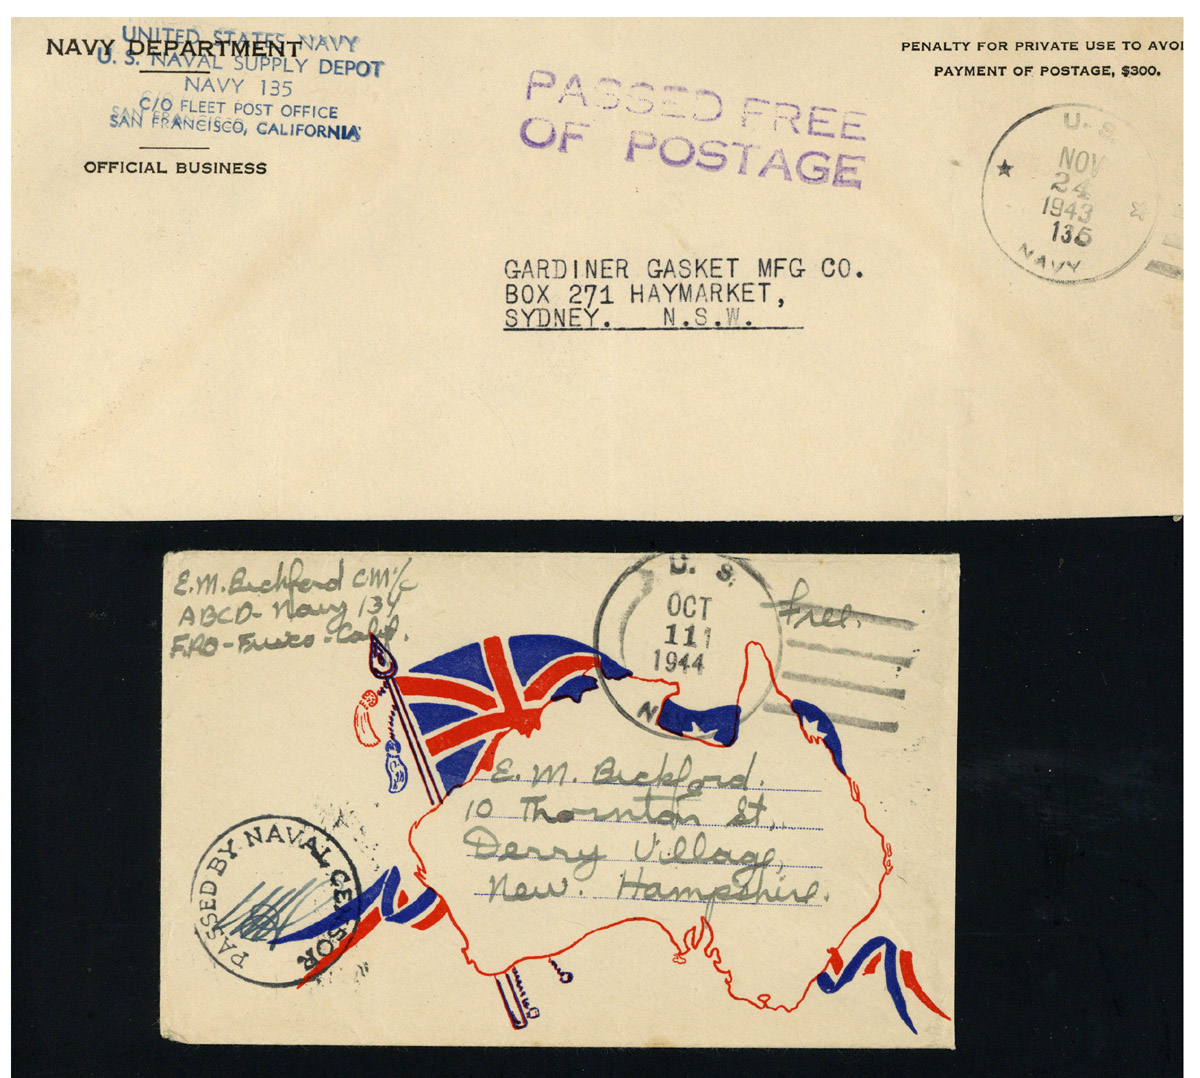 NAVY DEPARTMENT
UNITED STATES NAVY
U. S. NAVAL SUPPLY DEPOT
NAVY 135
C/O FLEET POST OFFICE
SAN FRANCISCO, CALIFORNIA
OFFICIAL BUSINESS
PASSED FREE
OF POSTAGE
PENALTY FOR PRIVATE USE TO AVOI
PAYMENT OF POSTAGE, $300.
U. S.
NOV
24
1943
135
NAVY
GARDINER GASKET MFG CO.
BOX 271 HAYMARKET,
SYDNEY. N.S.W.
E. M. Bickford CM1/c
ABCD - Navy 134
F.P.O - Frisco - Calif.
U. S.
OCT
111
1944
Free.
E. M. Bickford.
10 Thornton St,
Derry Village,
New. Hampshire.
PASSED BY NAVAL CENSOR